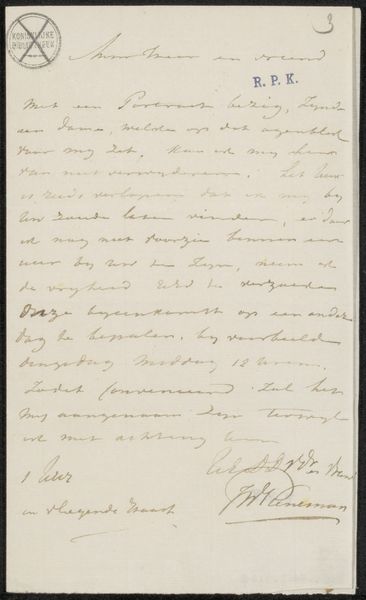 3
KONINKLIJKE
BIBLIOTHEEK
Mijn Heer en vriend
R. P. K.
Met een Portret bezig, zynde
een dame, welke op dit ogenblik
voor my zit, kan ik my hier
van niet verwyderen. Het uur
is reeds verlopen dat ik my by
Uw zoude laten vinden, en daar
ik nog niet voorzie binnen een
uur by Uw te zyn, neem ik
de vryheid UEd te verzoeken
onze byeenkomst op een andere
dag te bepalen, by voorbeeld
dingsdag middag 12 uren.
Zo dit convenieerd zal het
my aangenaam zyn terwyl
ik met achting ben
1 Uur
UEd
en vriend
in vliegende haast
JW Pieneman